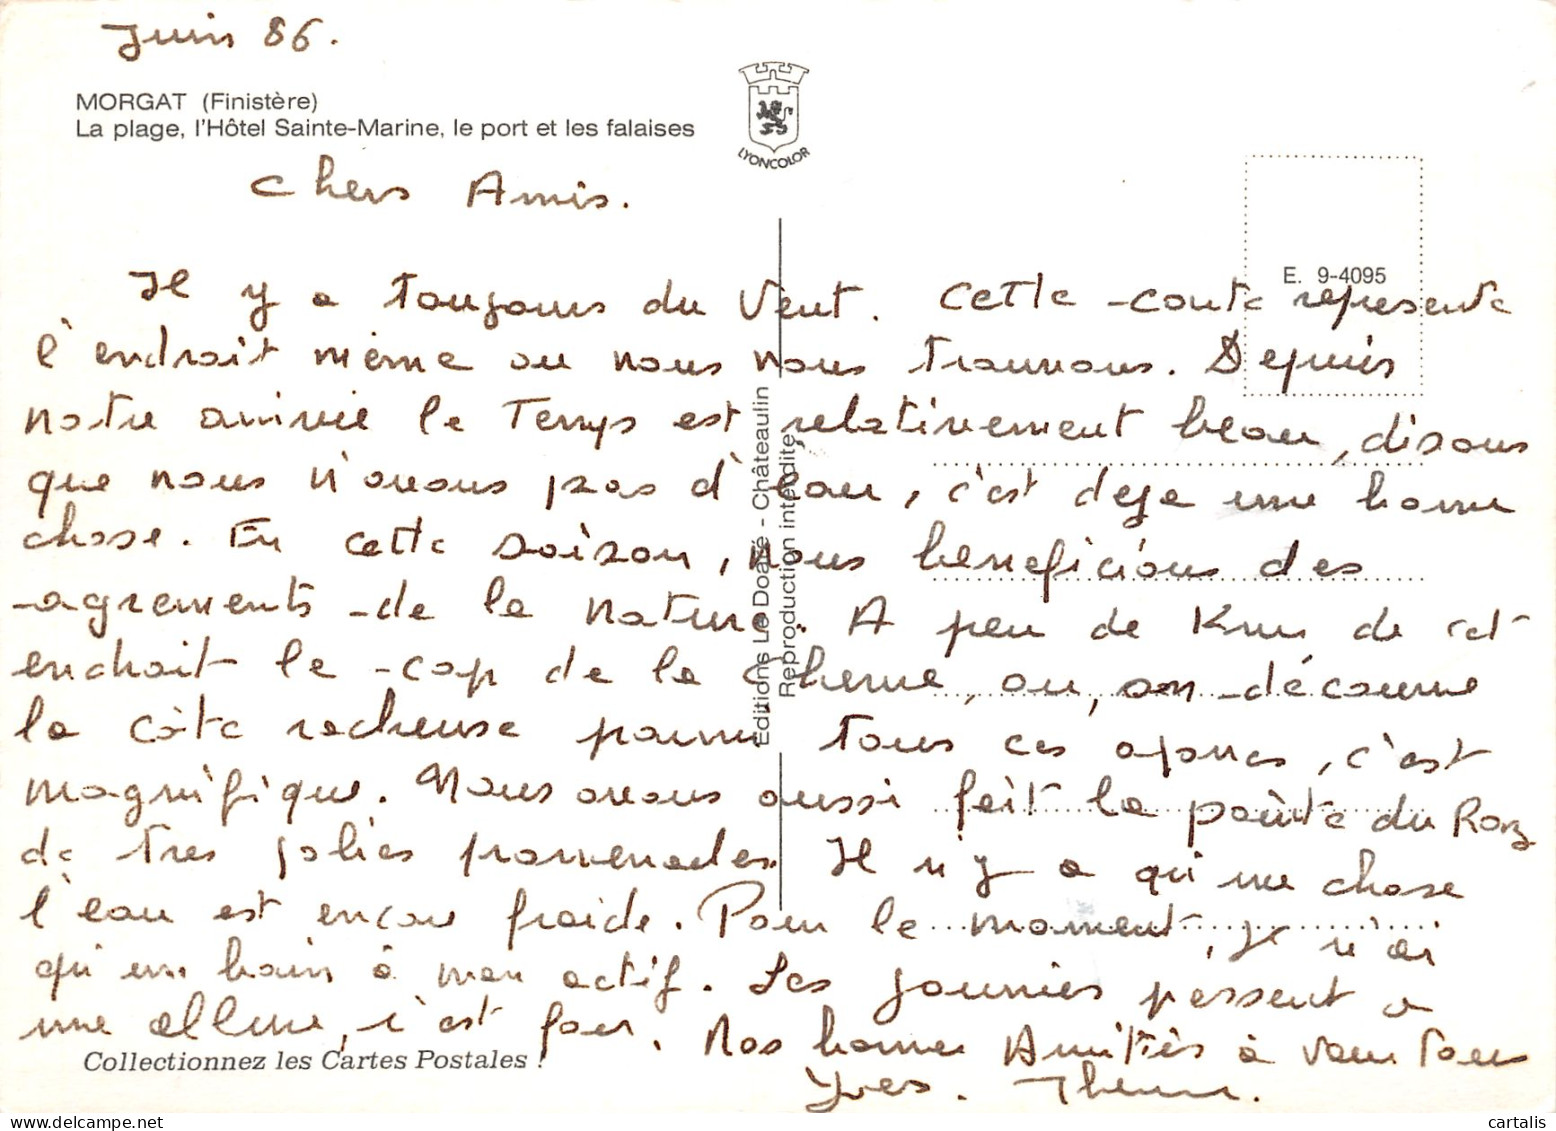 Juin 86.
MORGAT (Finistère)
La plage, l'Hôtel Sainte-Marine, le port et les falaises
LYONCOLOR
Chers Amis.
E. 9-4095
Il y a toujours du vent. Cette carte represente
l'endroit même ou nous nous trouvons. Depuis
notre arrivée le Temps est relativement beau, disons
que nous n'avons pas d'eau, c'est deja une bonne
chose. En cette saison, nous beneficions des
agrements de la nature. A peu de Kms de cet
endroit le cap de la Chevre, ou, on découvre
la côte rocheuse parmi tous ces ajoncs, c'est
magnifique. Nous avons aussi fait la pointe du Raz
de tres jolies promenades. Il n'y a qu'une chose
l'eau est encore froide. Pour le moment, je n'ai
qu'un bain à mon actif. Les journées passent a
une allure, c'est fou. Nos bonnes Amitiés à vous tous
Yves.
Editions Le Doaré - Châteaulin
Reproduction interdite
Collectionnez les Cartes Postales !
cartalis